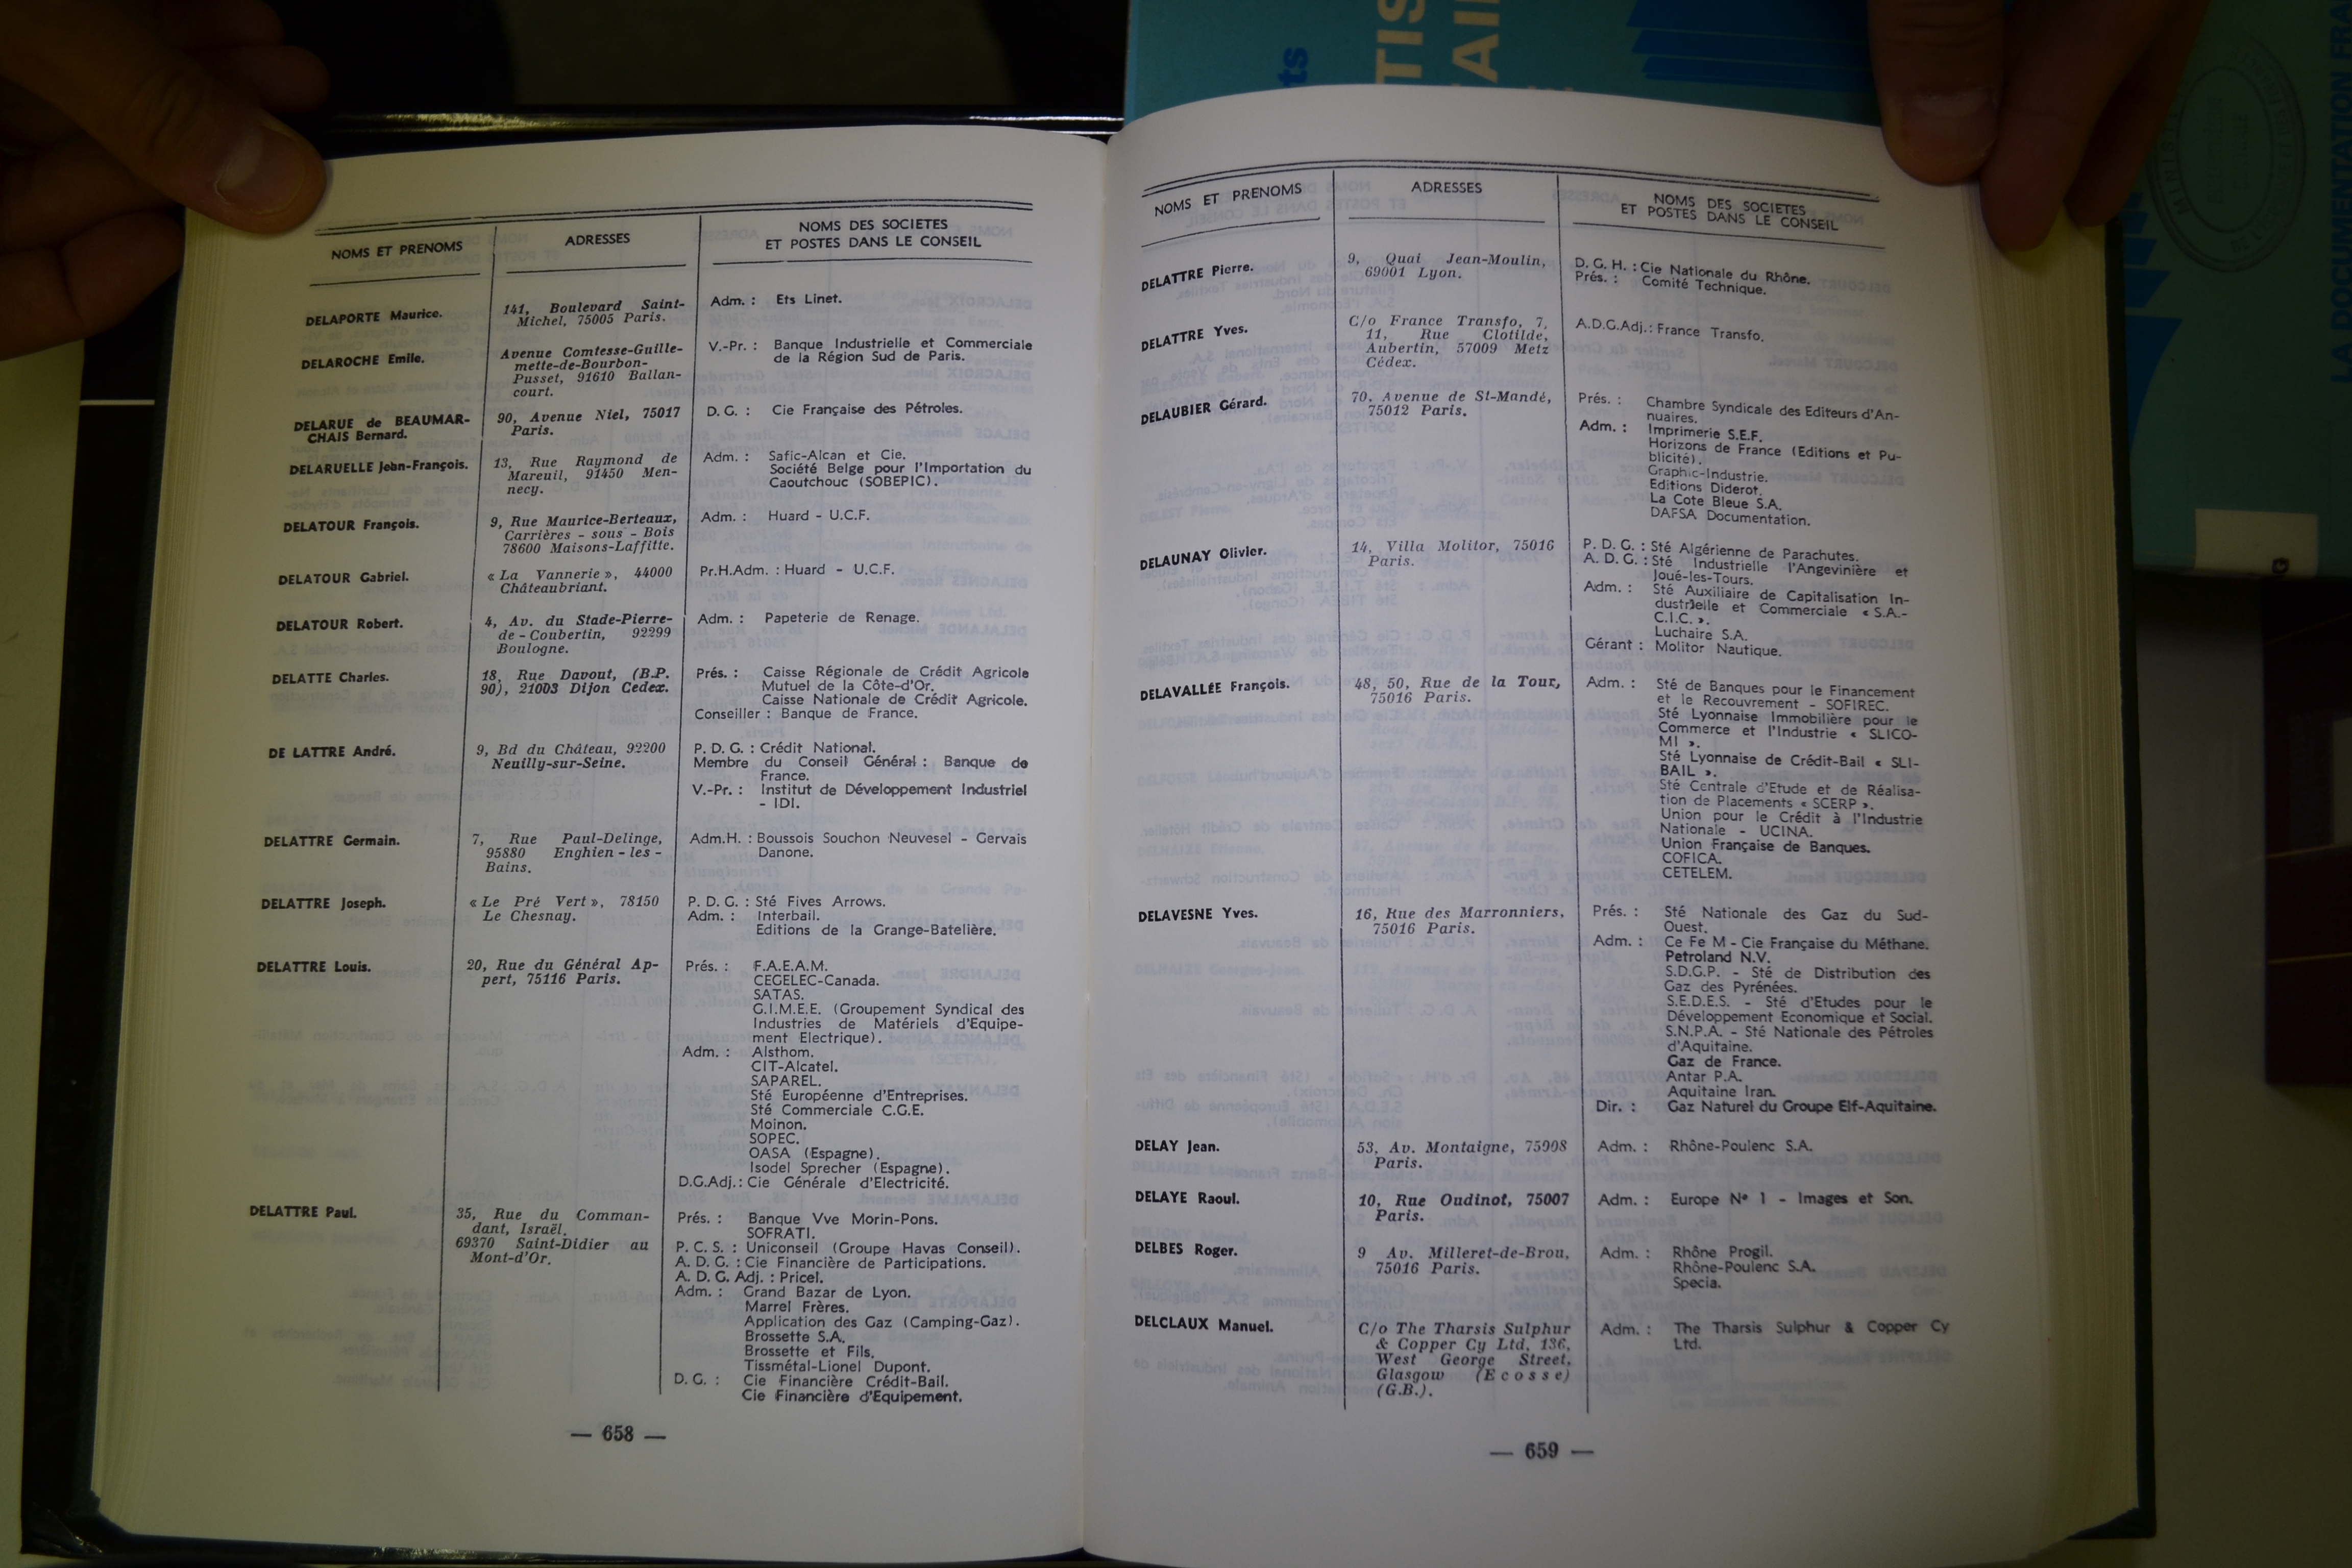 NOMS ET PRENOMS
ADRESSES
NOMS DES SOCIETES
ET POSTES DANS LE CONSEIL
DELAPORTE Maurice.
141, Boulevard Saint-
Michel, 75005 Paris.
Adm. : Ets Linet.
DELAROCHE Emile.
Avenue Comtesse-Guille-
mette-de-Bourbon-
Pusset, 91610 Ballan-
court.
V.-Pr. : Banque Industrielle et Commerciale
de la Région Sud de Paris.
DELARUE de BEAUMAR-
CHAIS Bernard.
90, Avenue Niel, 75017
Paris.
D. G. : Cie Française des Pétroles.
DELARUELLE Jean-François.
13, Rue Raymond de
Mareuil, 91450 Men-
necy.
Adm. : Safic-Alcan et Cie.
Société Belge pour l'Importation du
Caoutchouc (SOBEPIC).
DELATOUR François.
9, Rue Maurice-Berteaux,
Carrières - sous - Bois
78600 Maisons-Laffitte.
Adm. : Huard - U.C.F.
DELATOUR Gabriel.
« La Vannerie », 44000
Châteaubriant.
Pr.H.Adm. : Huard - U.C.F.
DELATOUR Robert.
4, Av. du Stade-Pierre-
de - Coubertin, 92299
Boulogne.
Adm. : Papeterie de Renage.
DELATTE Charles.
18, Rue Davout, (B.P.
90), 21003 Dijon Cedex.
Prés. : Caisse Régionale de Crédit Agricole
Mutuel de la Côte-d'Or.
Caisse Nationale de Crédit Agricole.
Conseiller : Banque de France.
DE LATTRE André.
9, Bd du Château, 92200
Neuilly-sur-Seine.
P. D. G. : Crédit National.
Membre du Conseil Général : Banque de
France.
V.-Pr. : Institut de Développement Industriel
- IDI.
DELATTRE Germain.
7, Rue Paul-Delinge,
95880 Enghien - les -
Bains.
Adm.H. : Boussois Souchon Neuvesel - Gervais
Danone.
DELATTRE Joseph.
« Le Pré Vert », 78150
Le Chesnay.
P. D. G. : Sté Fives Arrows.
Adm. : Interbail.
Editions de la Grange-Batelière.
DELATTRE Louis.
20, Rue du Général Ap-
pert, 75116 Paris.
Prés. : F.A.E.A.M.
CEGELEC-Canada.
SATAS.
G.I.M.E.E. (Groupement Syndical des
Industries de Matériels d'Equipe-
ment Electrique).
Adm. : Alsthom.
CIT-Alcatel.
SAPAREL.
Sté Européenne d'Entreprises.
Sté Commerciale C.G.E.
Moinon.
SOPEC.
OASA (Espagne).
Isodel Sprecher (Espagne).
D.G.Adj.: Cie Générale d'Electricité.
DELATTRE Paul.
35, Rue du Comman-
dant, Israël.
69370 Saint-Didier au
Mont-d'Or.
Prés. : Banque Vve Morin-Pons.
SOFRATI.
P. C. S. : Uniconseil (Groupe Havas Conseil).
A. D. G. : Cie Financière de Participations.
A. D. G. Adj. : Pricel.
Adm. : Grand Bazar de Lyon.
Marrel Frères.
Application des Gaz (Camping-Gaz).
Brossette S.A.
Brossette et Fils.
Tissmétal-Lionel Dupont.
D. G. : Cie Financière Crédit-Bail.
Cie Financière d'Equipement.
— 658 —
NOMS ET PRENOMS
ADRESSES
NOMS DES SOCIETES
ET POSTES DANS LE CONSEIL
DELATTRE Pierre.
9, Quai Jean-Moulin,
69001 Lyon.
D. G. H. : Cie Nationale du Rhône.
Prés. : Comité Technique.
DELATTRE Yves.
C/o France Transfo, 7,
11, Rue Clotilde,
Aubertin, 57009 Metz
Cédex.
A.D.G.Adj.: France Transfo.
DELAUBIER Gérard.
70, Avenue de St-Mandé,
75012 Paris.
Prés. : Chambre Syndicale des Editeurs d'An-
nuaires.
Adm. : Imprimerie S.E.F.
Horizons de France (Editions et Pu-
blicité).
Graphic-Industrie.
Editions Diderot.
La Cote Bleue S.A.
DAFSA Documentation.
DELAUNAY Olivier.
14, Villa Molitor, 75016
Paris.
P. D. G. : Sté Algérienne de Parachutes.
A. D. G. : Sté Industrielle l'Angevinière et
Joué-les-Tours.
Adm. : Sté Auxiliaire de Capitalisation In-
dustrielle et Commerciale « S.A.-
C.I.C. ».
Luchaire S.A.
Gérant : Molitor Nautique.
DELAVALLÉE François.
48, 50, Rue de la Tour,
75016 Paris.
Adm. : Sté de Banques pour le Financement
et le Recouvrement - SOFIREC.
Sté Lyonnaise Immobilière pour le
Commerce et l'Industrie « SLICO-
MI ».
Sté Lyonnaise de Crédit-Bail « SLI-
BAIL ».
Sté Centrale d'Etude et de Réalisa-
tion de Placements « SCERP ».
Union pour le Crédit à l'Industrie
Nationale - UCINA.
Union Française de Banques.
COFICA.
CETELEM.
DELAVESNE Yves.
16, Rue des Marronniers,
75016 Paris.
Prés. : Sté Nationale des Gaz du Sud-
Ouest.
Adm. : Ce Fe M - Cie Française du Méthane.
Petroland N.V.
S.D.G.P. - Sté de Distribution des
Gaz des Pyrénées.
S.E.D.E.S. - Sté d'Etudes pour le
Développement Economique et Social.
S.N.P.A. - Sté Nationale des Pétroles
d'Aquitaine.
Gaz de France.
Antar P.A.
Aquitaine Iran.
Dir. : Gaz Naturel du Groupe Elf-Aquitaine.
DELAY Jean.
53, Av. Montaigne, 75008
Paris.
Adm. : Rhône-Poulenc S.A.
DELAYE Raoul.
10, Rue Oudinot, 75007
Paris.
Adm. : Europe N° 1 - Images et Son.
DELBES Roger.
9 Av. Milleret-de-Brou,
75016 Paris.
Adm. : Rhône Progil.
Rhône-Poulenc S.A.
Specia.
DELCLAUX Manuel.
C/o The Tharsis Sulphur
& Copper Cy Ltd, 136,
West George Street,
Glasgow (Ecosse)
(G.B.).
Adm. : The Tharsis Sulphur & Copper Cy
Ltd.
— 659 —
LA DOCUMENTATION FRA